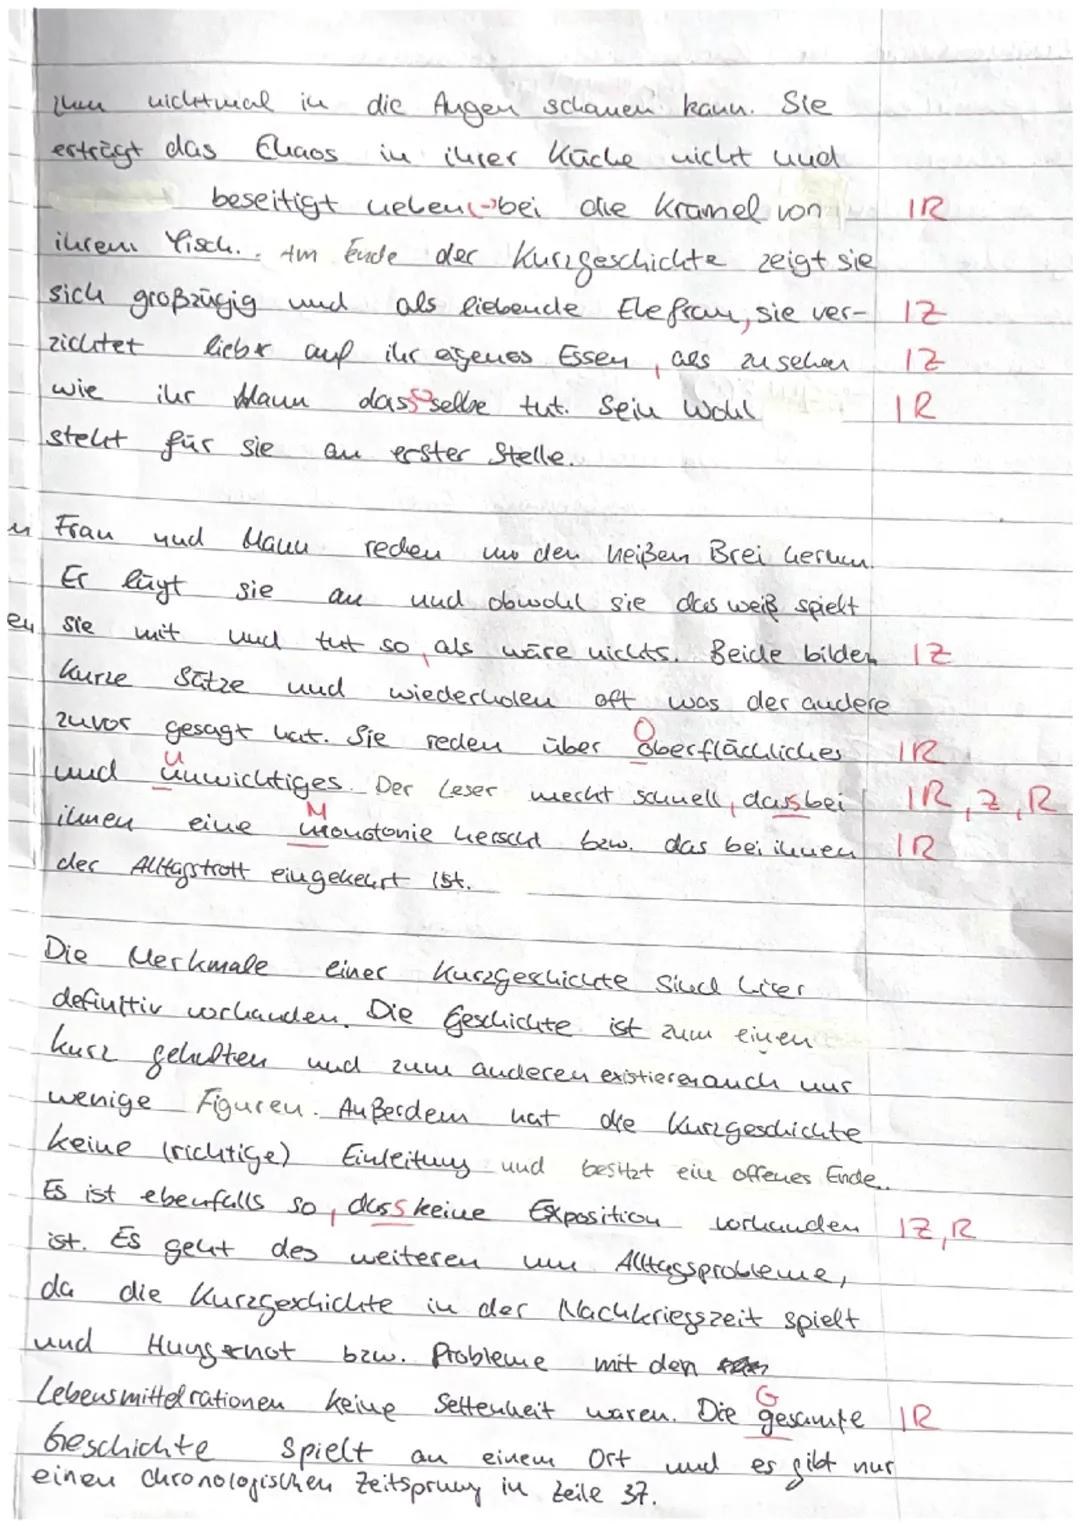 ihm nichtmal in die Augen schauen kann. Sie
erträgt das Chaos in ihrer Küche nicht und
beseitigt neben(->bei die Krämel von IR
ihrem Tisch. Am Ende der Kurzgeschichte zeigt sie
sich großzügig und als liebende Ehefrau, sie ver- IZ
zichtet lieber auf ihr eigenes Essen, als zu sehen IZ
wie ihr Mann dasselbe tut. Sein Wohl IR
steht für sie an erster Stelle.
n Frau und Mann reden um den heißen Brei herum.
Er lügt sie an und obwohl sie das weiß spielt
en sie mit und tut so, als wäre nichts. Beide bilden IZ
kurze Sätze und wiederholen oft was der andere
zuvor gesagt hat. Sie reden über oberflächliches IR
O
und unwichtiges. Der Leser mecht schnell, dass bei IR, Z, R
U
ihnen eine monotonie herscht bzw. das bei ihnen IR
M
der Alltagstrott eingekehrt ist.
Die Merkmale einer Kurzgeschichte sind hier
definitiv vorhanden. Die Geschichte ist zum einen
kurz gehalten und zum anderen existieren auch nur
wenige Figuren. Außerdem hat die Kurzgeschichte
keine (richtige) Einleitung und besitzt ein offenes Ende.
Es ist ebenfalls so, dass keine Exposition vorhanden IZ, R
ist. Es geht des weiteren um Alltagsprobleme,
da die Kurzgeschichte in der Nachkriegszeit spielt
und Hungernot bzw. Probleme mit den
Lebensmittelrationen keine Seltenheit waren. Die gesamte IR
G
Geschichte spielt an einem Ort und es gibt nur
einen chronologischen Zeitsprung in Zeile 37.